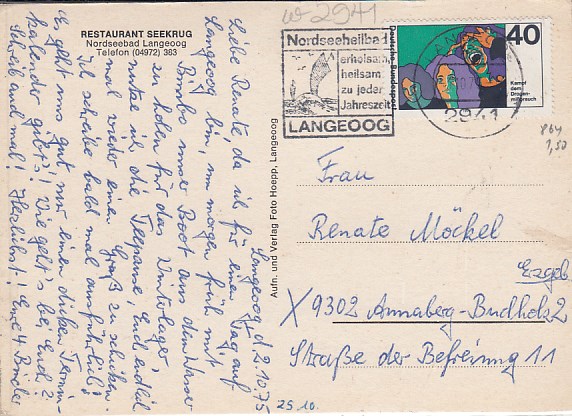 w 2941
RESTAURANT SEEKRUG
Nordseebad Langeoog
Telefon (04972) 383
Langeoog d 2.10.75
Liebe Renate, da ich für einen Tag auf
Langeoog bin, um morgen früh mit
Bimbo unser Boot aus dem Wasser
zu holen für das Winterlager,
nutze ich die Pause, Euch endlich
mal wieder einen Gruß zu schicken.
Ich schreibe bald mal ausführlich!
Es geht uns gut nur einen dicken Termin-
kalender gibt's! Wie geht's bei Euch?
Schreib auch mal! Herzlichst! Eure 4 Binder
Aufn. und Verlag Foto Hoepp, Langeoog
Nordseeheilbad
erholsam,
heilsam
zu jeder
Jahreszeit
LANGEOOG
2941
Deutsche Bundespost
40
Kampf
dem
Drogen-
mißbrauch
864
1,50
Frau
Renate Möckel
Erzgeb
X 9302 Annaberg-Buchholz 2
Straße der Befreiung 11
25.10.